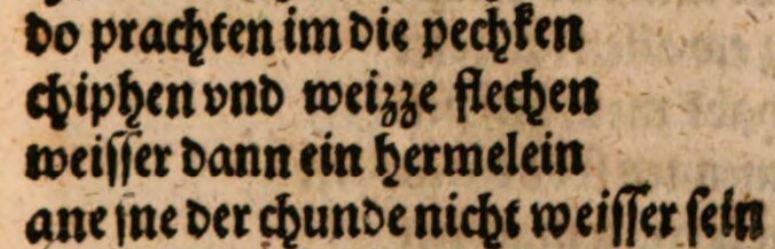 do prachten im die pechken
chiphen vnd weizze flechen
weisser dann ein hermelein
ane jne der chunde nicht weisser sein